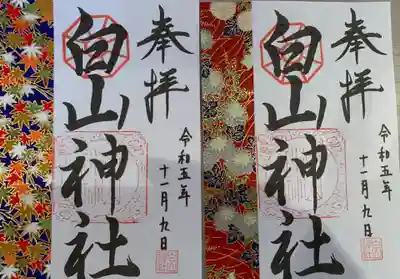 奉拝
白山神社
令和五年
十一月九日
奉拝
白山神社
令和五年
十一月九日